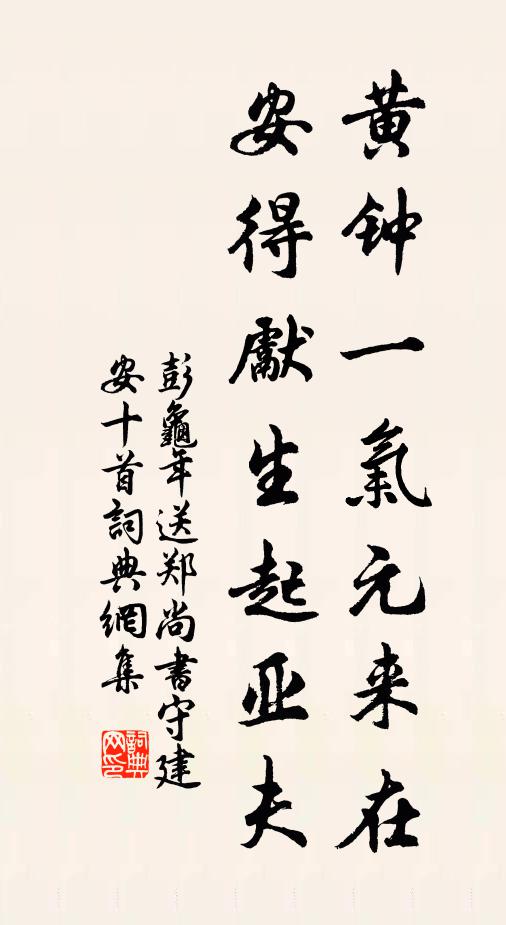 黄钟一氣元来在
安得獻生起亚夫
彭龜年送郑尚書守建
安十首詞典網集
詞典網印